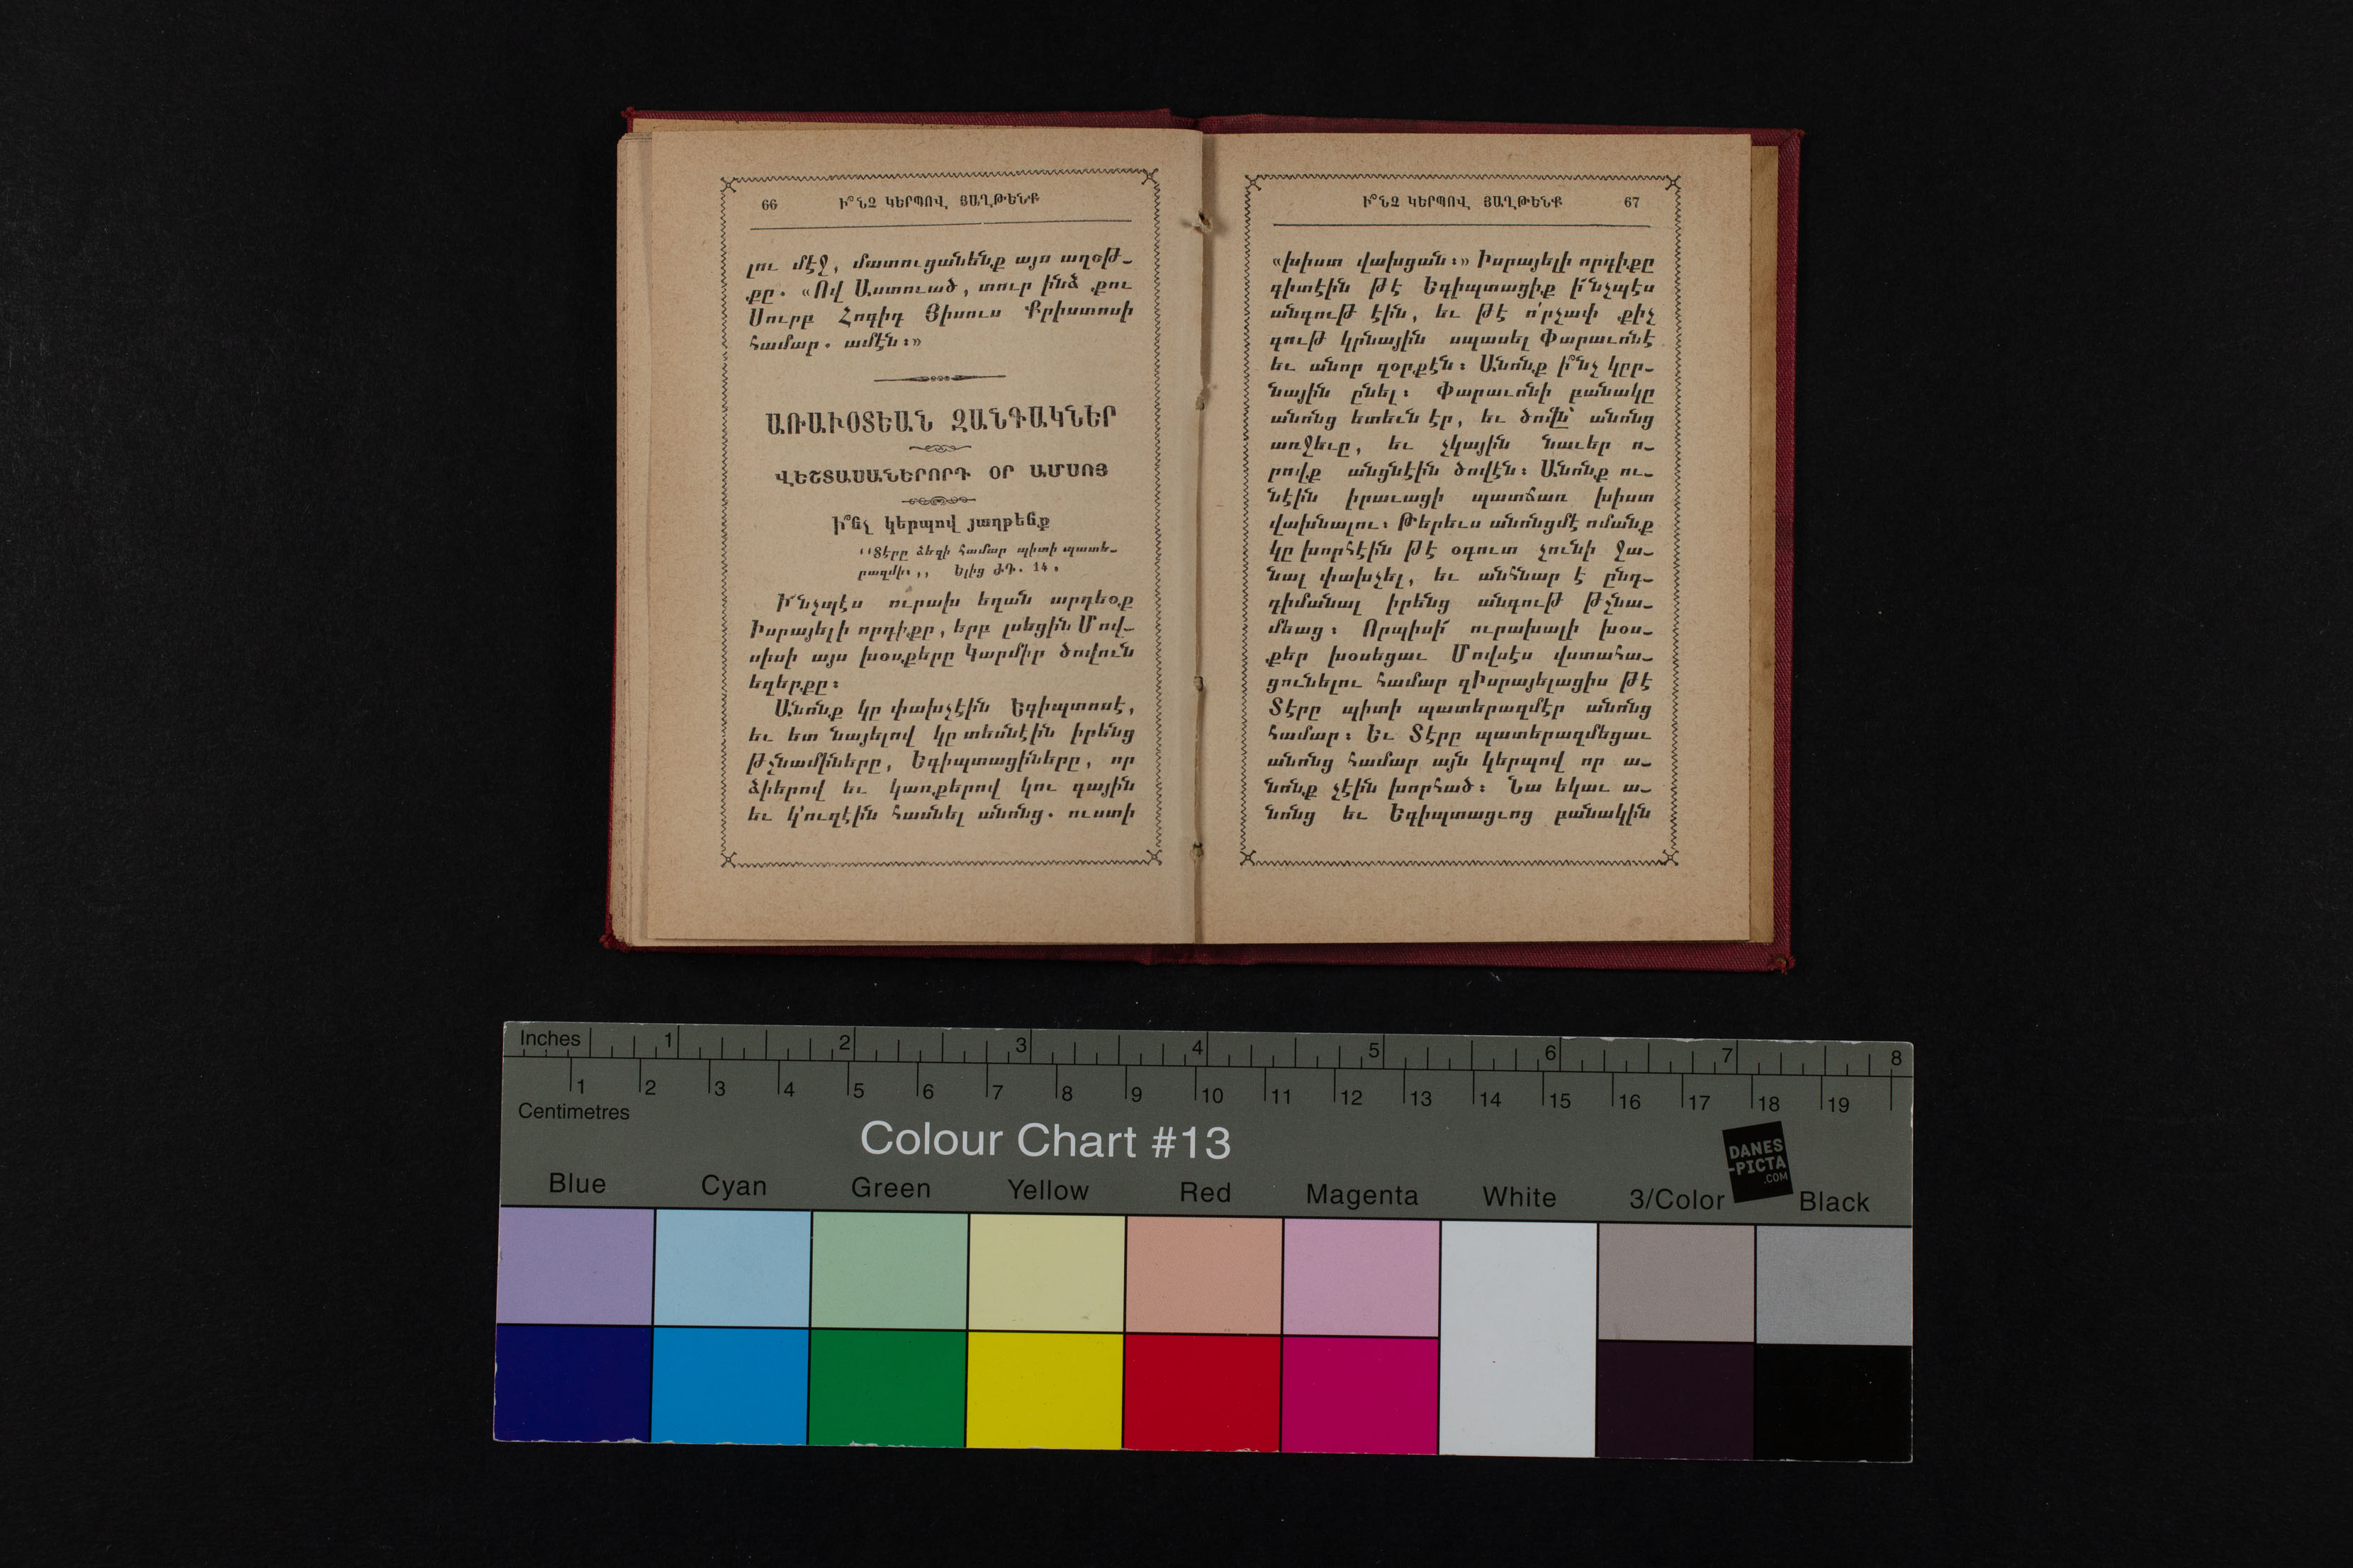 66 Ի՞ՆՉ ԿԵՐՊՈՎ ՅԱՂԹԵՆՔ
լու մէջ, մատուցանենք այս աղօթ-
քը. «Ով Աստուած, տուր ինձ քու
Սուրբ Հոգիդ Յիսուս Քրիստոսի
համար. ամէն։»
ԱՌԱՒՕՏԵԱՆ ԶԱՆԳԱԿՆԵՐ
ՎԵՇՏԱՍԱՆԵՐՈՐԴ ՕՐ ԱՄՍՈՅ
Ի՞նչ կերպով յաղթենք
‘‘Տէրը ձեզի համար պիտի պատե-
րազմի։,, Ելից ԺԴ. 14։
Ի՜նչպէս ուրախ եղան արդեօք
Իսրայելի որդիքը, երբ լսեցին Մով-
սիսի այս խօսքերը Կարմիր ծովուն
եզերքը։
Անոնք կը փախչէին Եգիպտոսէ,
եւ ետ նայելով կը տեսնէին իրենց
թշնամիները, Եգիպտացիները, որ
ձիերով եւ կառքերով կու գային
եւ կ՚ուզէին հասնել անոնց. ուստի
Ի՞ՆՉ ԿԵՐՊՈՎ ՅԱՂԹԵՆՔ 67
«խիստ վախցան։» Իսրայելի որդիքը
գիտէին թէ Եգիպտացիք ի՜նչպէս
անգութ էին, եւ թէ ո՛րչափ քիչ
գութ կրնային սպասել Փարաւոնէ
եւ անոր զօրքէն։ Անոնք ի՞նչ կըր-
նային ընել։ Փարաւոնի բանակը
անոնց ետեւն էր, եւ ծովն՝ անոնց
առջեւը, եւ չկային նաւեր ո-
րովք անցնէին ծովէն։ Անոնք ու-
նէին իրաւացի պատճառ խիստ
վախնալու։ Թերեւս անոնցմէ ոմանք
կը խորհէին թէ օգուտ չունի ջա-
նալ փախչել, եւ անհնար է ընդ-
դիմանալ իրենց անգութ թշնա-
մեաց։ Որպիսի՜ ուրախալի խօս-
քեր խօսեցաւ Մովսէս վստահա-
ցունելու համար զԻսրայելացիս թէ
Տէրը պիտի պատերազմէր անոնց
համար։ Եւ Տէրը պատերազմեցաւ
անոնց համար այն կերպով որ ա-
նոնք չէին խորհած։ Նա եկաւ ա-
նոնց եւ Եգիպտացւոց բանակին
Inches 1 2 3 4 5 6 7 8
1 2 3 4 5 6 7 8 9 10 11 12 13 14 15 16 17 18 19
Centimetres
Colour Chart #13
DANES
-PICTA
.COM
Blue Cyan Green Yellow Red Magenta White 3/Color Black